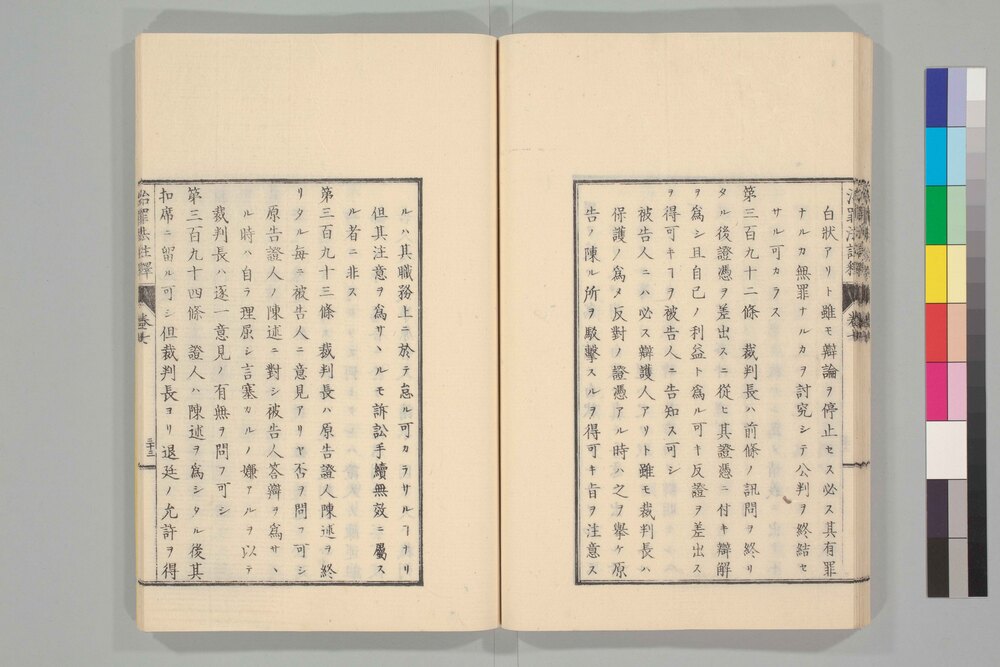 白狀アリト雖モ辯論ヲ停止セス必ス其有罪
ナルカ無罪ナルカヲ討究シテ公判ヲ終結セ
サル可カラス
第三百九十二條 裁判長ハ前條ノ訊問ヲ終リ
タル後證憑ヲ差出スニ從ヒ其證憑ニ付キ辯解
ヲ爲シ且自己ノ利益ト爲ル可キ反證ヲ差出ス
ヲ得可キヿヲ被告人ニ告知ス可シ
被告人ニハ必ス辯護人アリト雖モ裁判長ハ
保護ノ爲メ反對ノ證憑アル時ハ之ヲ擧ケ原
告ノ陳ル所ヲ駁擊スルヲ得可キ旨ヲ注意ス
ルハ其職務上ニ於テ怠ル可カラサルヿナリ
但其注意ヲ爲サヽルモ訴訟手續無效ニ屬ス
ル者ニ非ス
第三百九十三條 裁判長ハ原告證人陳述ヲ終
リタル每ニ被告人ニ意見アリヤ否ヲ問フ可シ
原告證人ノ陳述ニ對シ被告人答辯ヲ爲サヽ
ル時ハ自ラ理屈シ言塞カルノ嫌アルヲ以テ
裁判長ハ逐一意見ノ有無ヲ問フ可シ
第三百九十四條 證人ハ陳述ヲ爲シタル後其
扣席ニ留ル可シ但裁判長ヨリ退廷ノ允許ヲ得
治罪法註釋 卷七 三十三